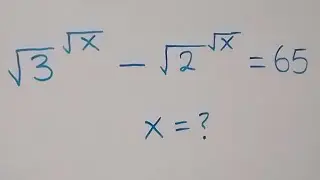 √3^√x − √2^√x = 65
x = ?